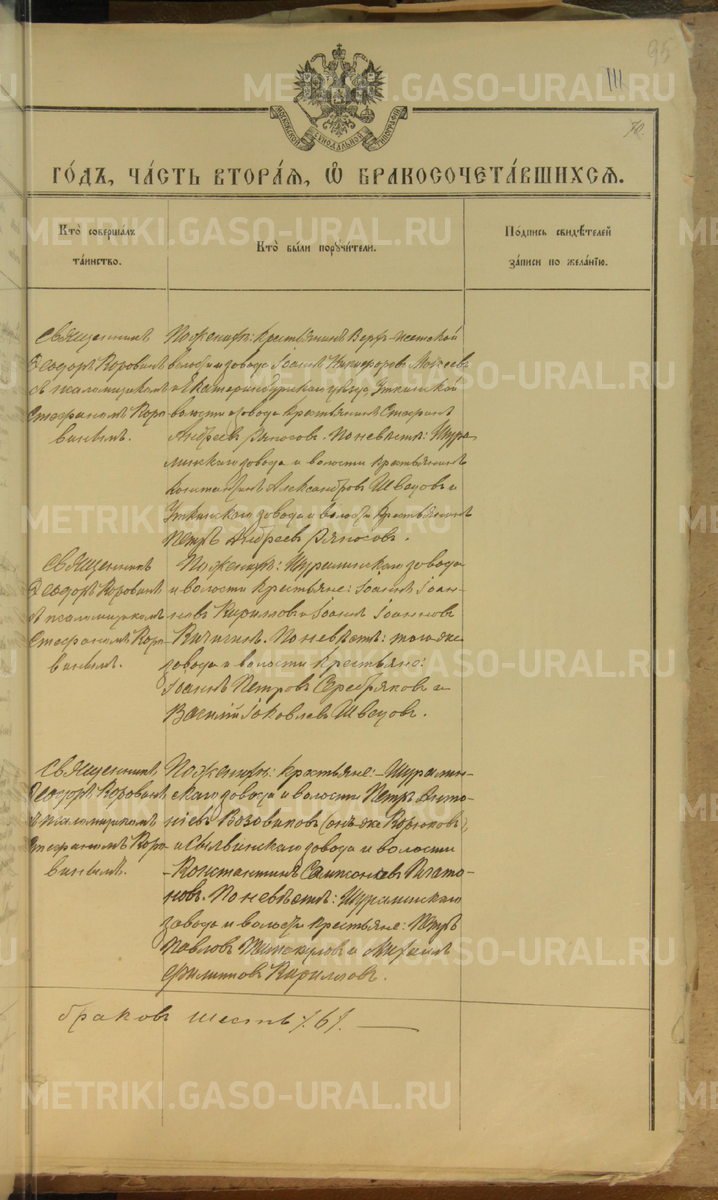 95
III
МОСКОВСКОЙ СѴНОДАЛЬНОЙ ТИПОГРАФІИ
ГО́ДЪ, ЧА́СТЬ ВТОРА́Я, Ѽ БРАКОСОЧЕТА́ВШИХСЯ.
Кто̀ соверша́лъ
та́инство.
Кто̀ бы́ли поручи́тели.
По́дпись свидѣ́телей
за́писи по жела́нію.
Священникъ
Ѳеодоръ Коровинъ
съ псаломщикомъ
Стефаномъ Коро-
винымъ.
По женихѣ: крестьянинъ Верх-Исетской
волости и завода Іоаннъ Никифоровъ Моисеевъ
и Екатеринбургскаго уѣзда Уткинской
волости и завода крестьянинъ Стефанъ
Андреевъ Вяносовъ. По невѣстѣ: Шура-
линскаго завода и волости крестьянинъ
Константинъ Александровъ Швецовъ и
Уткинскаго завода и волости крестьянинъ
Петръ Андреевъ Вяносовъ.
Священникъ
Ѳеодоръ Коровинъ
съ псаломщикомъ
Стефаномъ Коро-
винымъ.
По женихѣ: Шуралинскаго завода
и волости крестьяне: Іоаннъ Іоан-
новъ Кирилловъ и Іоаннъ Іоанновъ
Кичигинъ. По невѣстѣ: того же
завода и волости крестьяне:
Іоаннъ Петровъ Серебряковъ и
Василій Іаковлевъ Швецовъ.
Священникъ
Ѳеодоръ Коровинъ
съ псаломщикомъ
Стефаномъ Коро-
винымъ.
По женихѣ: крестьяне: Шуралин-
скаго завода и волости Петръ Анто-
ніевъ Возовиковъ (онъ же Корюковъ),
и Сылвинскаго завода и волости
Константинъ Симоновъ Плато-
новъ. По невѣстѣ: Шуралинскаго
завода и волости крестьяне: Петръ
Павловъ и Михаилъ
Филипповъ Кирилловъ.
браковъ шесть /6/.
METRIKI.GASO-URAL.RU